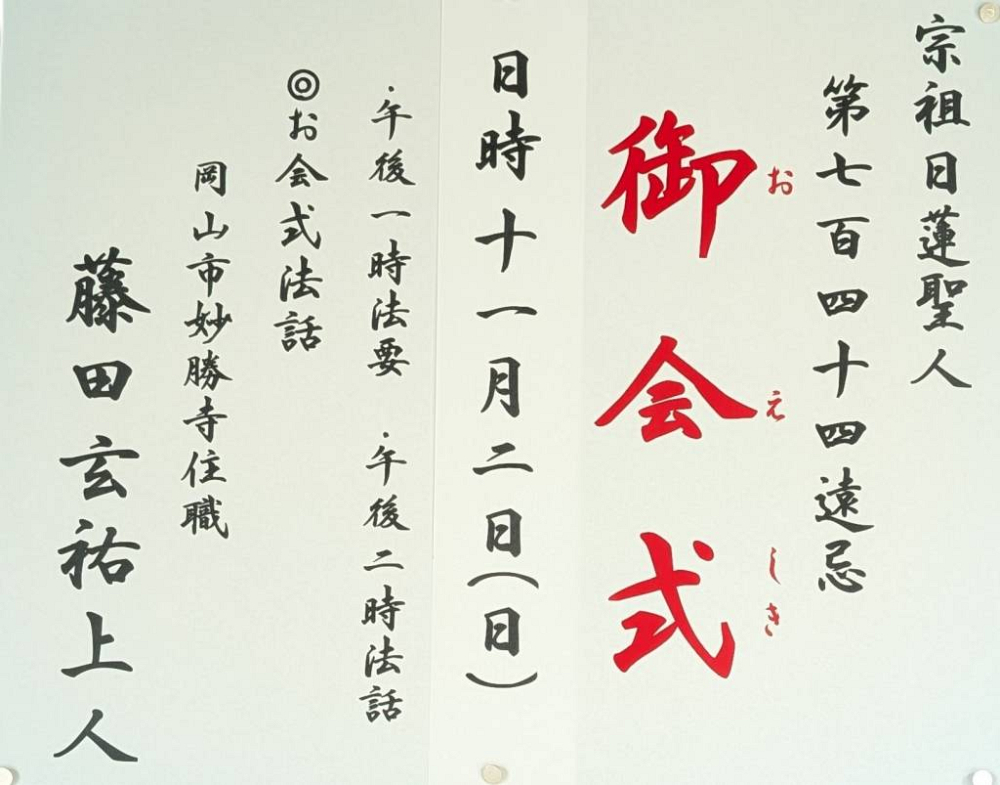 宗祖日蓮聖人
第七百四十四遠忌
御会式
おえしき
日時十一月二日(日)
・午後一時法要 ・午後二時法話
◎お会式法話
岡山市妙勝寺住職
藤田玄祐上人